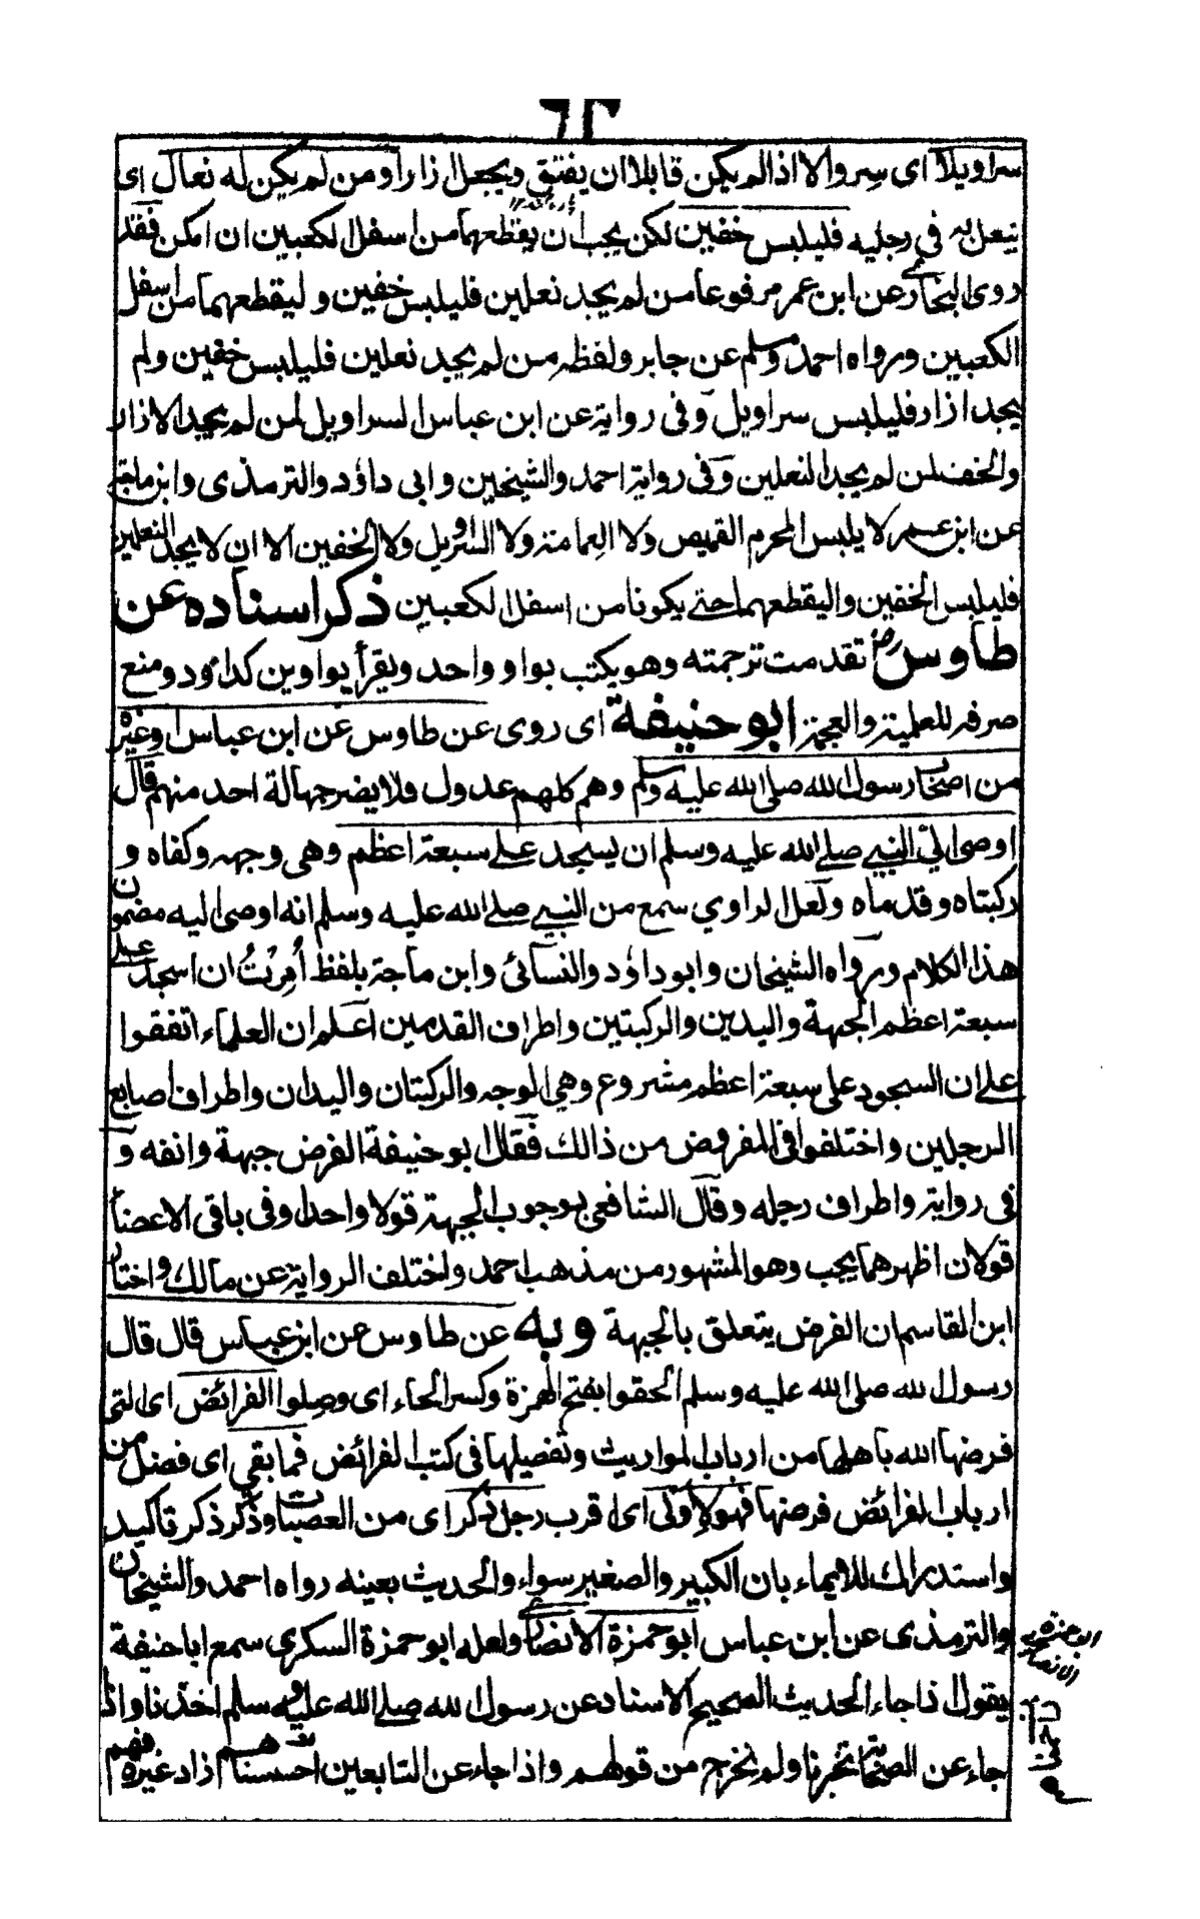 سراويلا اى سروالا اذا لم يكن قابلا ان يفتق ويجعل ازارا ومن لم يكن له نعال اى
ينعل به فى رجليه فليلبس خفين لكن يجب ان يقطعهما من اسفل الكعبين ان امكن فقد
روى البخارى عن ابن عمر مرفوعا من لم يجد نعلين فليلبس خفين وليقطعهما من اسفل
الكعبين ورواه احمد ومسلم عن جابر ولفظه من لم يجد نعلين فليلبس خفين ولم
يجد ازار فليلبس سراويل وفى رواية عن ابن عباس السراويل لمن لم يجد الازار
والخف لمن لم يجد النعلين وفى رواية احمد والشيخين وابى داؤد والترمذى وابن ماجة
عن ابن عمر لا يلبس المحرم القميص ولا العمامة ولا السراويل ولا الخفين الا ان لا يجد النعلين
فليلبس الخفين واليقطعهما حتى يكونا من اسفل الكعبين ذكر اسناده عن
طاوس رض تقدمت ترجمته وهو يكتب بواو واحد ويقرأ بواوين كداؤد ومنع
صرفه للعلمية والعجمة ابو حنيفة اى روى عن طاوس عن ابن عباس او غيره
من اصحاب رسول الله صلى الله عليه وسلم وهم كلهم عدول فلا يضر جهالة احد منهم قال
اوصى الى النبى صلى الله عليه وسلم ان يسجد على سبعة اعظم وهى وجهه وكفاه و
ركبتاه وقدماه ولعل الراوي سمع من النبى صلى الله عليه وسلم انه اوصى اليه مضمون
هذا الكلام ورواه الشيخان وابو داؤد والنسائى وابن ماجة بلفظ أُمِرْتُ ان اسجد على
سبعة اعظم الجبهة واليدين والركبتين واطراف القدمين اعلم ان العلماء اتفقوا
على ان السجود على سبعة اعظم مشروع وهي الوجه والركبتان واليدان واطراف اصابع
الرجلين واختلفوا فى المفروض من ذالك فقال ابو حنيفة الفرض جبهة وانفه و
فى رواية واطراف رجله وقال الشافعى بوجوب الجبهة قولا واحدا وفى باقى الاعضاء
قولان اظهرهما يجب وهو المشهور من مذهب احمد واختلف الرواية عن مالك واختار
ابن القاسم ان الفرض يتعلق بالجبهة وبه عن طاوس عن ابن عباس قال قال
رسول الله صلى الله عليه وسلم الحقوا بفتح الهمزة وكسر الحاء اى وصلوا الفرائض اى التى
فرضها الله باهلها من ارباب المواريث وتفصيلها فى كتب الفرائض فما بقي اى فضل من
ارباب الفرائض فرضها فهو لاولى اى اقرب رجل ذكر اى من العصبات وذكر ذكر تاكيد
واستدراك للايماء بان الكبير والصغير سواء والحديث بعينه رواه احمد والشيخان
والترمذى عن ابن عباس ابو حمزة الانصارى ولعله ابو حمزة السكرى سمع ابا حنيفة
يقول اذا جاء الحديث الصحيح الاسناد عن رسول الله صلى الله عليه وسلم اخذنا واذا
جاء عن الصحابة تخيرنا ولم نخرج من قولهم واذا جاء عن التابعين زاد غيره فهم
ابو حمزة
الانصارى